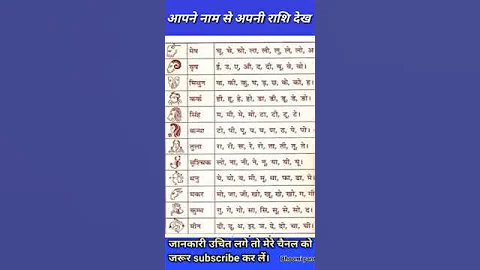 आपने नाम से अपनी राशि देख
मेष चू, चे, चो, ला, ली, लू, ले, लो, अ
वृष ई, उ, ए, ओ, द, दी, वू, वे, वो।
मिथुन क, की, कू, घ, ङ, छ, के, को, ह।
कर्क ही, हू, हे, हो, डा, डी, डू, डे, डो।
सिंह म, मी, मे, मो, टा, टी, टू, टे।
कन्या टो, पी, पू, ष, ण, ठ, पे, पो।
तुला रा, री, रू, रे, रो, ता, ती, तू, ते।
वृश्चिक लो, ना, नी, ने, नू, या, यी, यू।
धनु ये, यो, भ, भी, भू, धा, फा, ढा, भे।
मकर भो, जा, जी, खी, खू, खे, खो, ग, गी
कुम्भ गू, गे, गो, सा, सि, सू, से, सो, द।
मीन दी, दू, थ, झ, ञ, दे, दो, चा, ची।
जानकारी उचित लगे तो मेरे चैनल को
जरूर subscribe कर लें।